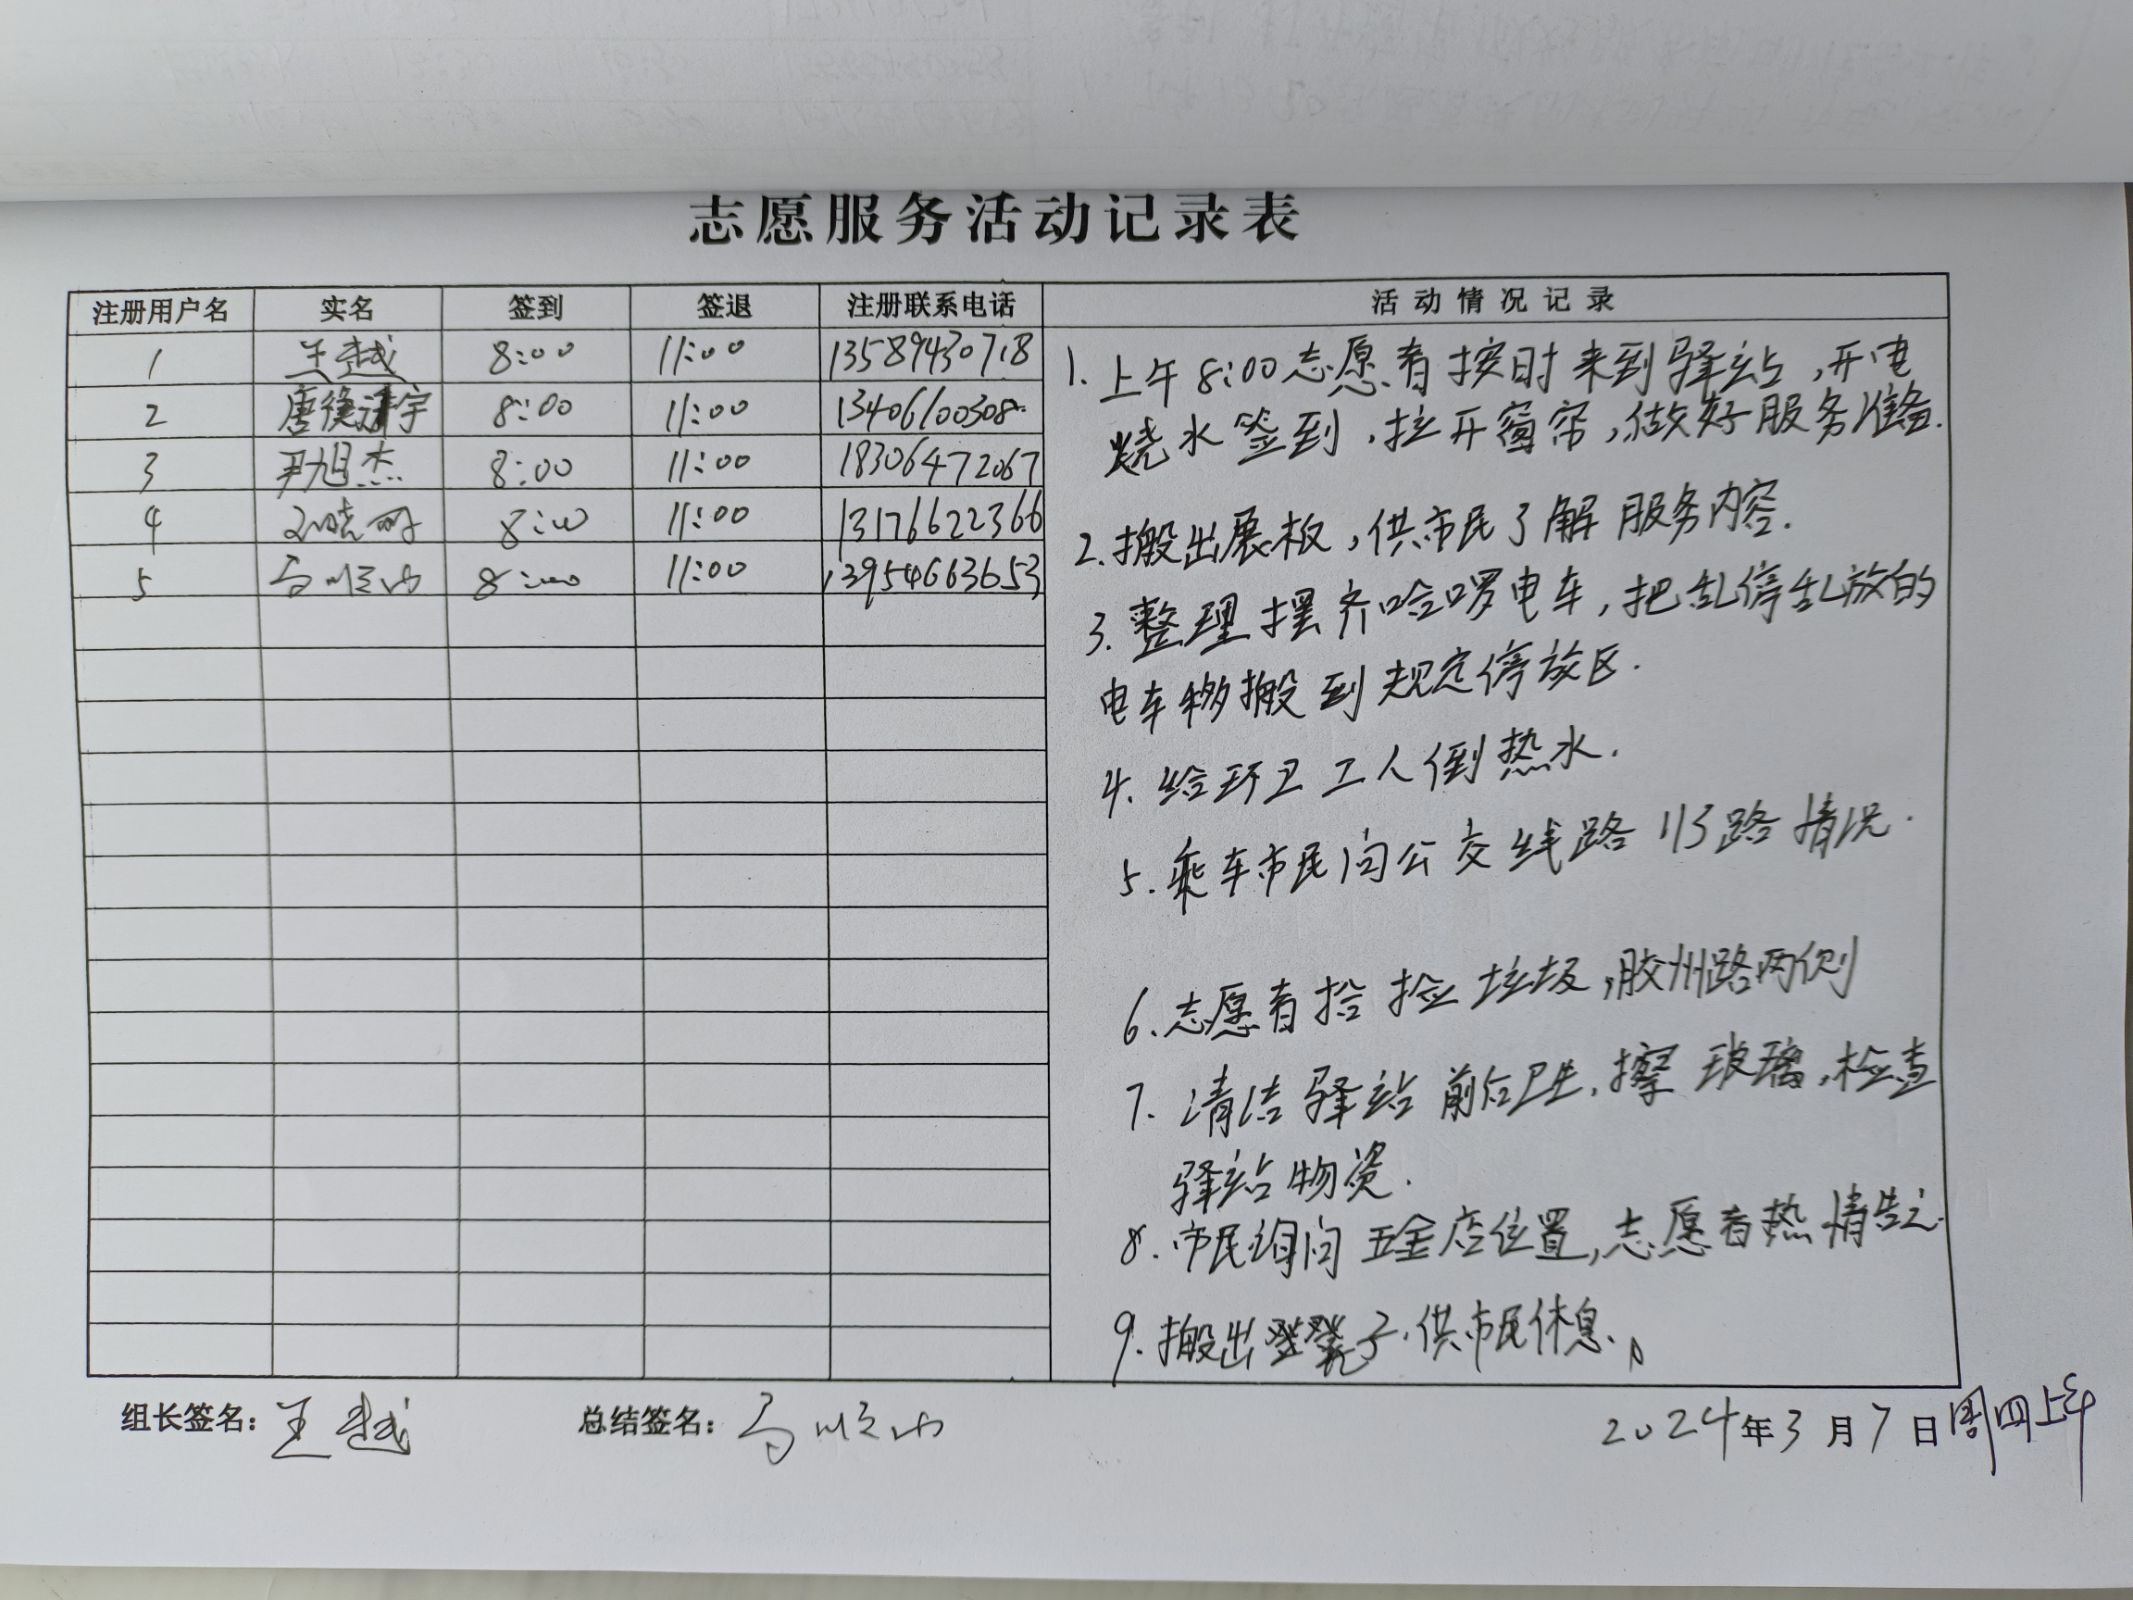 志愿服务活动记录表
注册用户名 实名 签到 签退 注册联系电话 活动情况记录
1 王越 8:00 11:00 13589430718
2 唐 宇 8:00 11:00 13406100308
3 尹旭杰 8:00 11:00 18306472067
4 晓丽 8:00 11:00 13176622366
5 马顺 8:00 11:00 13954663653
1. 上午8:00志愿者按时来到驿站,开电
烧水签到,拉开窗帘,做好服务准备.
2. 搬出展板,供市民了解服务内容.
3. 整理摆齐哈啰电车,把乱停乱放的
电车移搬到规定停放区.
4. 给环卫工人倒热水.
5. 乘车市民问公交线路113路情况.
6. 志愿者拾捡垃圾,胶州路两侧
7. 清洁驿站前后卫生,擦玻璃,检查
驿站物资.
8. 市民询问五金店位置,志愿者热情告之.
9. 搬出凳子.供市民休息.
组长签名: 王越 总结签名: 马顺 2024年3月7日周四上午